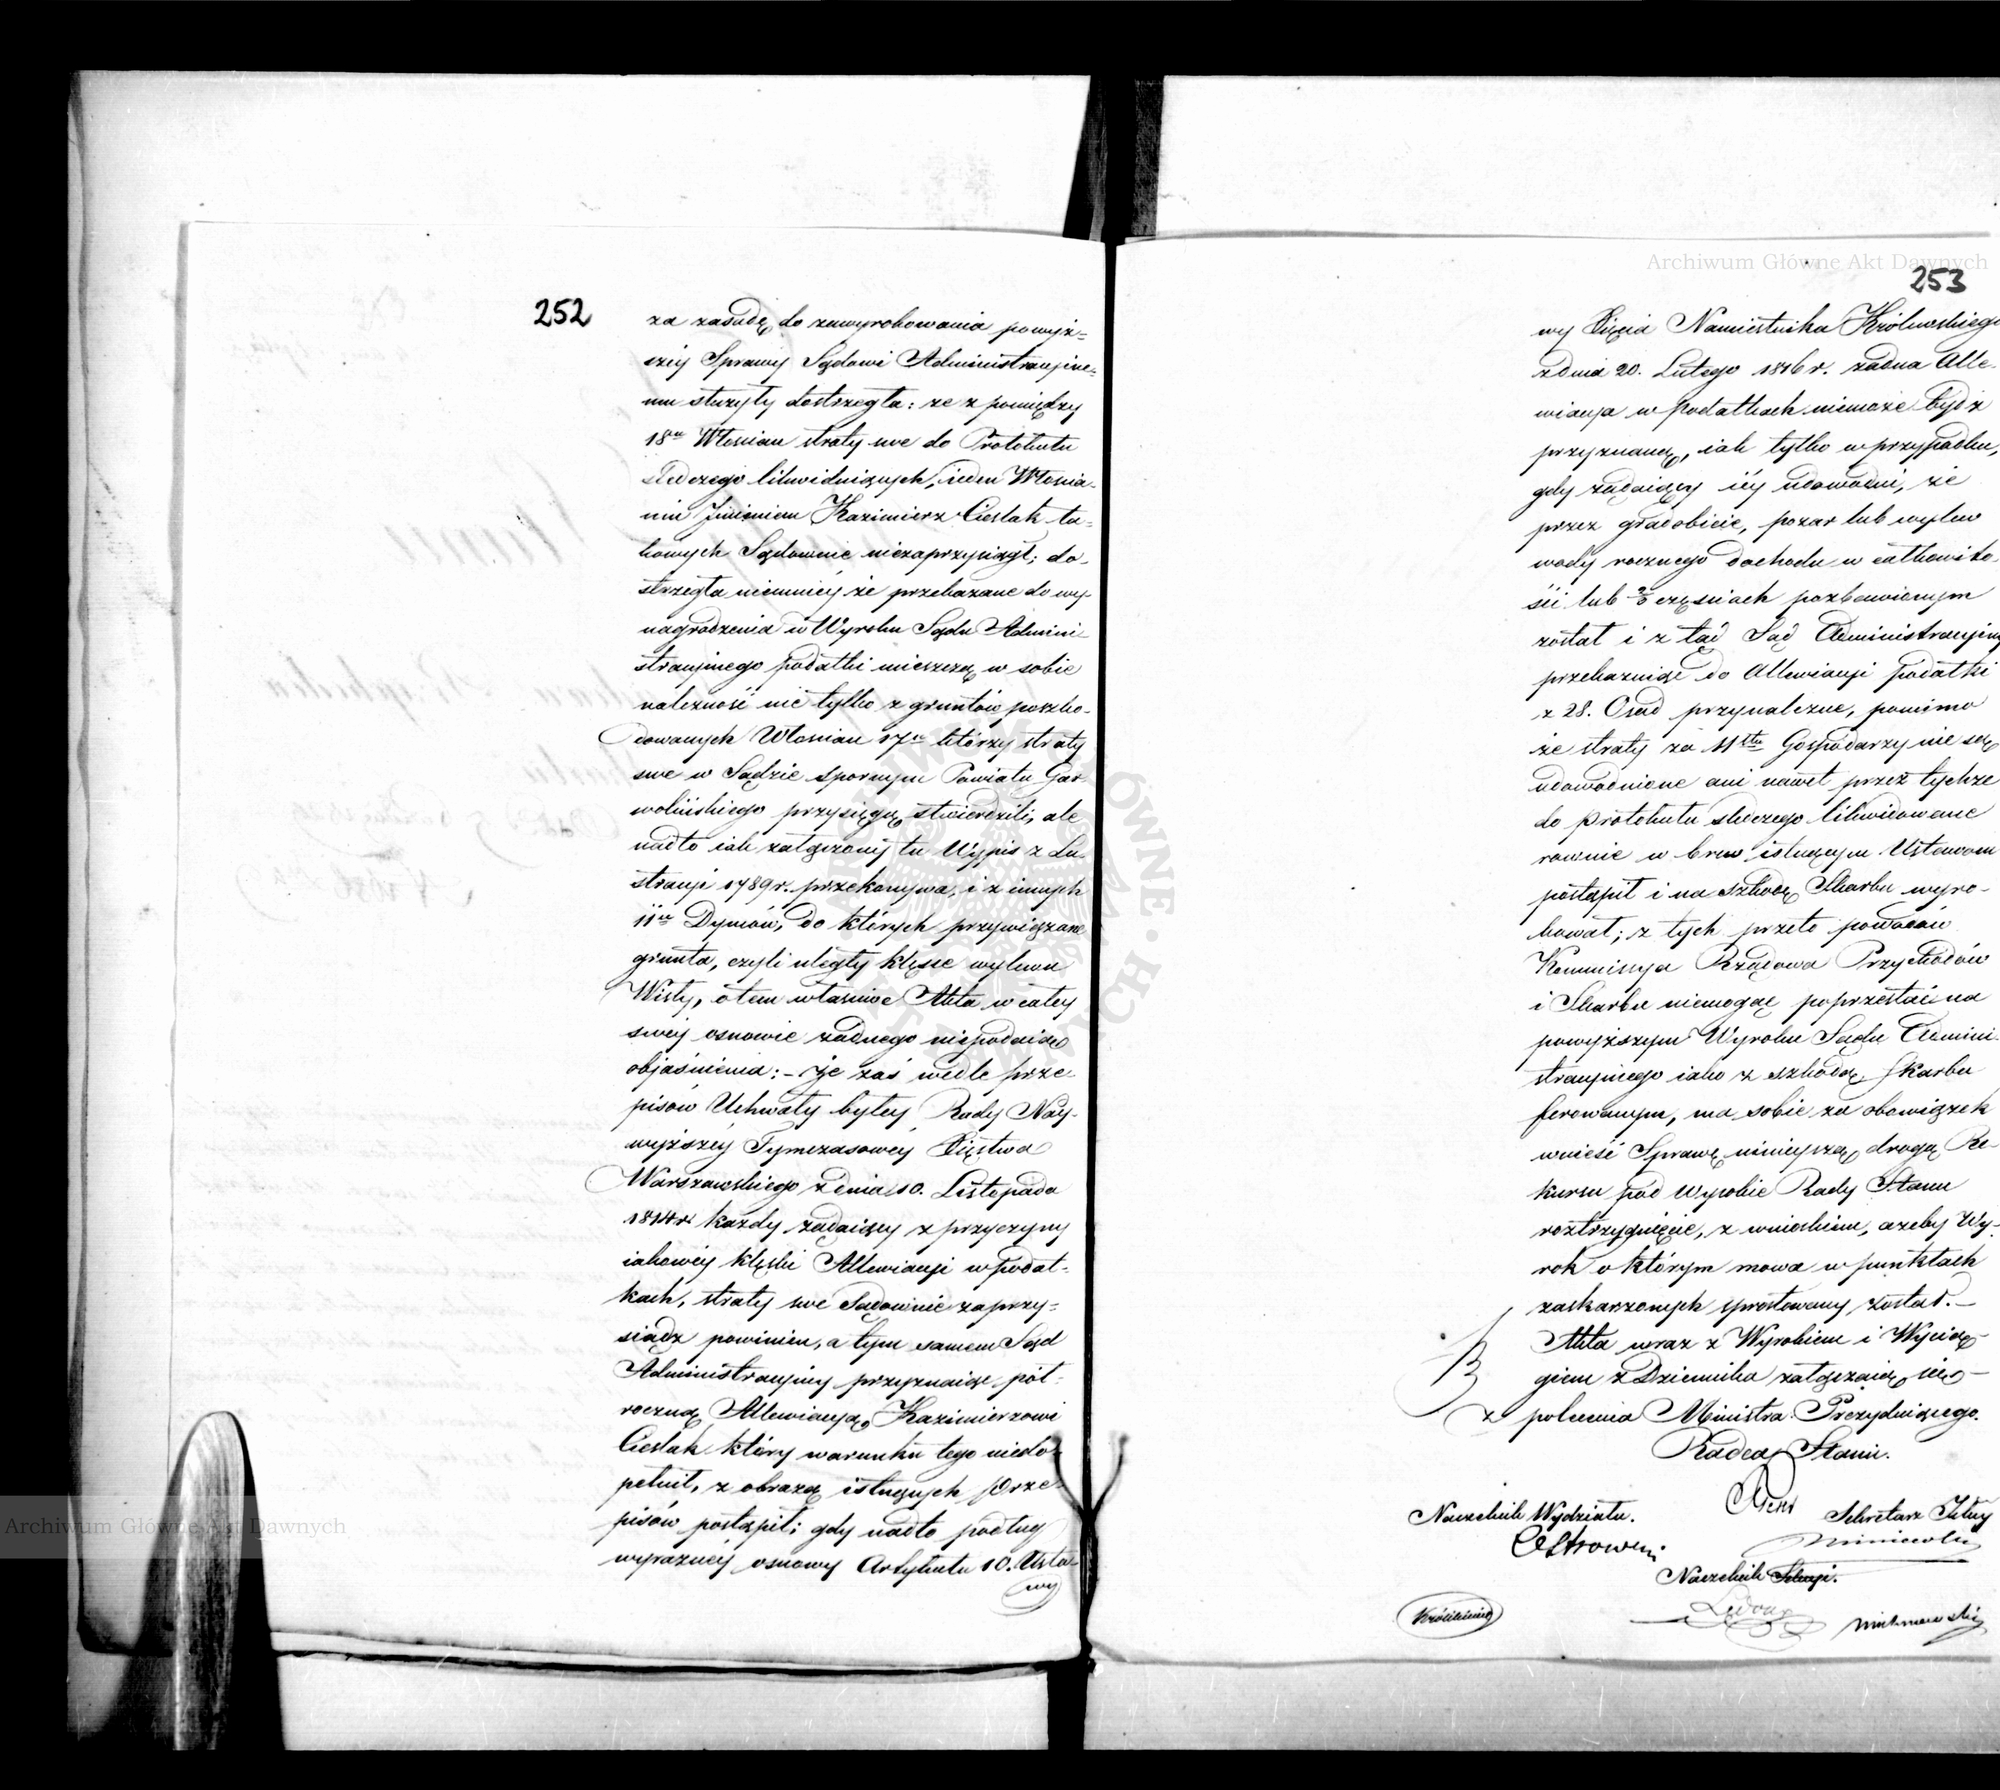 252
za zasadę do zawyrokowania powyż-
széy Sprawy Sądowi Administracyine-
mu służyły dostrzegła: że z pomiędzy
18tu Włościan straty swe do Protokułu
śledczego likwiduiących, ieden Włościa-
nin Imieniem Kazimierz Cieslak ta-
kowych Sądownie niezaprzysiągł; do-
strzegła niemniéy że przekazane do wy-
nagrodzenia w Wyroku Sądu Admini-
stracyinego podatki mieszczą w sobie
należność nie tylko z gruntów poszko-
dowanych Włościan 17tu którzy straty
swe w Sądzie Spornym Powiatu Gar-
wolińskiego przysięgą stwierdzili, ale
nadto iak załączony tu Wypis z Lu-
stracyi 1789 r. przekonywa, i z innych
11tu Dymów, do których przywiązane
grunta, czyli uległy klęsce wylewu
Wisły, o tem właśnie Akta w całey
swéy osnowie żadnego niepodaią
objaśnienia: – że zaś wedle prze-
pisów Uchwały byłéy Rady Náy-
wyższéy Tymczasowéy Xięstwa
Warszawskiego z dnia 10. Listopada
1814 r. każdy żądaiący z przyczyny
iakowéy klęski Allewiacyi w podat-
kach, straty swe Sądownie zaprzy-
siądz powinien, a tym samem Sąd
Administracyiny przyznaiąc pół-
roczną Allewiacyą Kazimierzowi
Cieslak który warunku tego niedo-
pełnił, z obrazą istnących Prze-
pisów postąpił; gdy nadto podług
wyraznéy osnowy Artykułu 10. Usta-
wy
253
wy Xięcia Namiestnika Królewskiego
z dnia 20. Lutego 1816 r. żadna Alle-
wiacya w podatkach niemoże bydź
przyznaną, iak tylko w przypadku,
gdy żądaiący iéy udowodni, że
przez gradobicie, pożar lub wylew
wody rocznego dochodu w całkowito-
ści lub 2/3 częściach pozbawionym
został i z tąd Sąd Administracyiny
przekazuiąc do Allewiacyi podatki
z 28. Osad przynależne, pomimo
że straty za 11stu Gospodarzy nie są
udowodnione ani nawet przez tychże
do Protokułu śledczego likwidowane
rownie w brew istnącym Ustawom
postąpił i na szkodę Skarbu wyro-
kował; z tych przeto powodów
Kommissya Rządowa Przychodów
i Skarbu niemogąc poprzestać na
powyższym Wyroku Sądu Admini-
stracyinego iako z szkodą Skarbu
ferowanym, ma sobie za obowiązek
wnieść Sprawę ninieyszą drogą Re-
kursu pod Wysokie Rady Stanu
roztrzygnięcie, z wnioskiem, ażeby Wy-
rok o którym mowa w punktach
zaskarżonych sprostowany został. –
Akta wraz z Wyrokiem i Wycią-
giem z Dziennika załączaią się –
z polecenia Ministra Prezyduiącego.
Radca Stanu.
Naczelnik Wydziału.
Sekretarz Jlny
Ostrowski
Naczelnik Sekcyi.